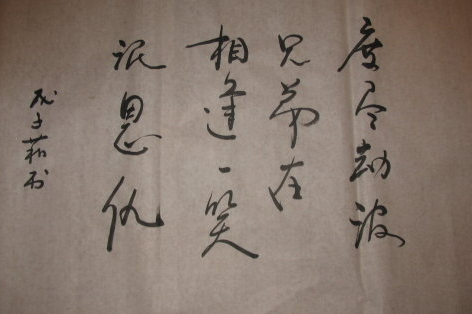 度尽劫波
兄弟在
相逢一笑
泯恩仇